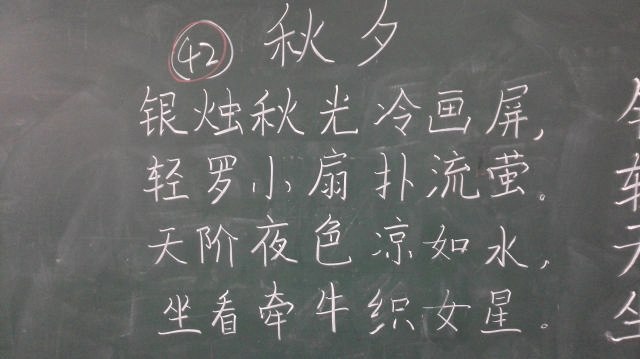 42 秋夕
银烛秋光冷画屏,
轻罗小扇扑流萤。
天阶夜色凉如水,
坐看牵牛织女星。